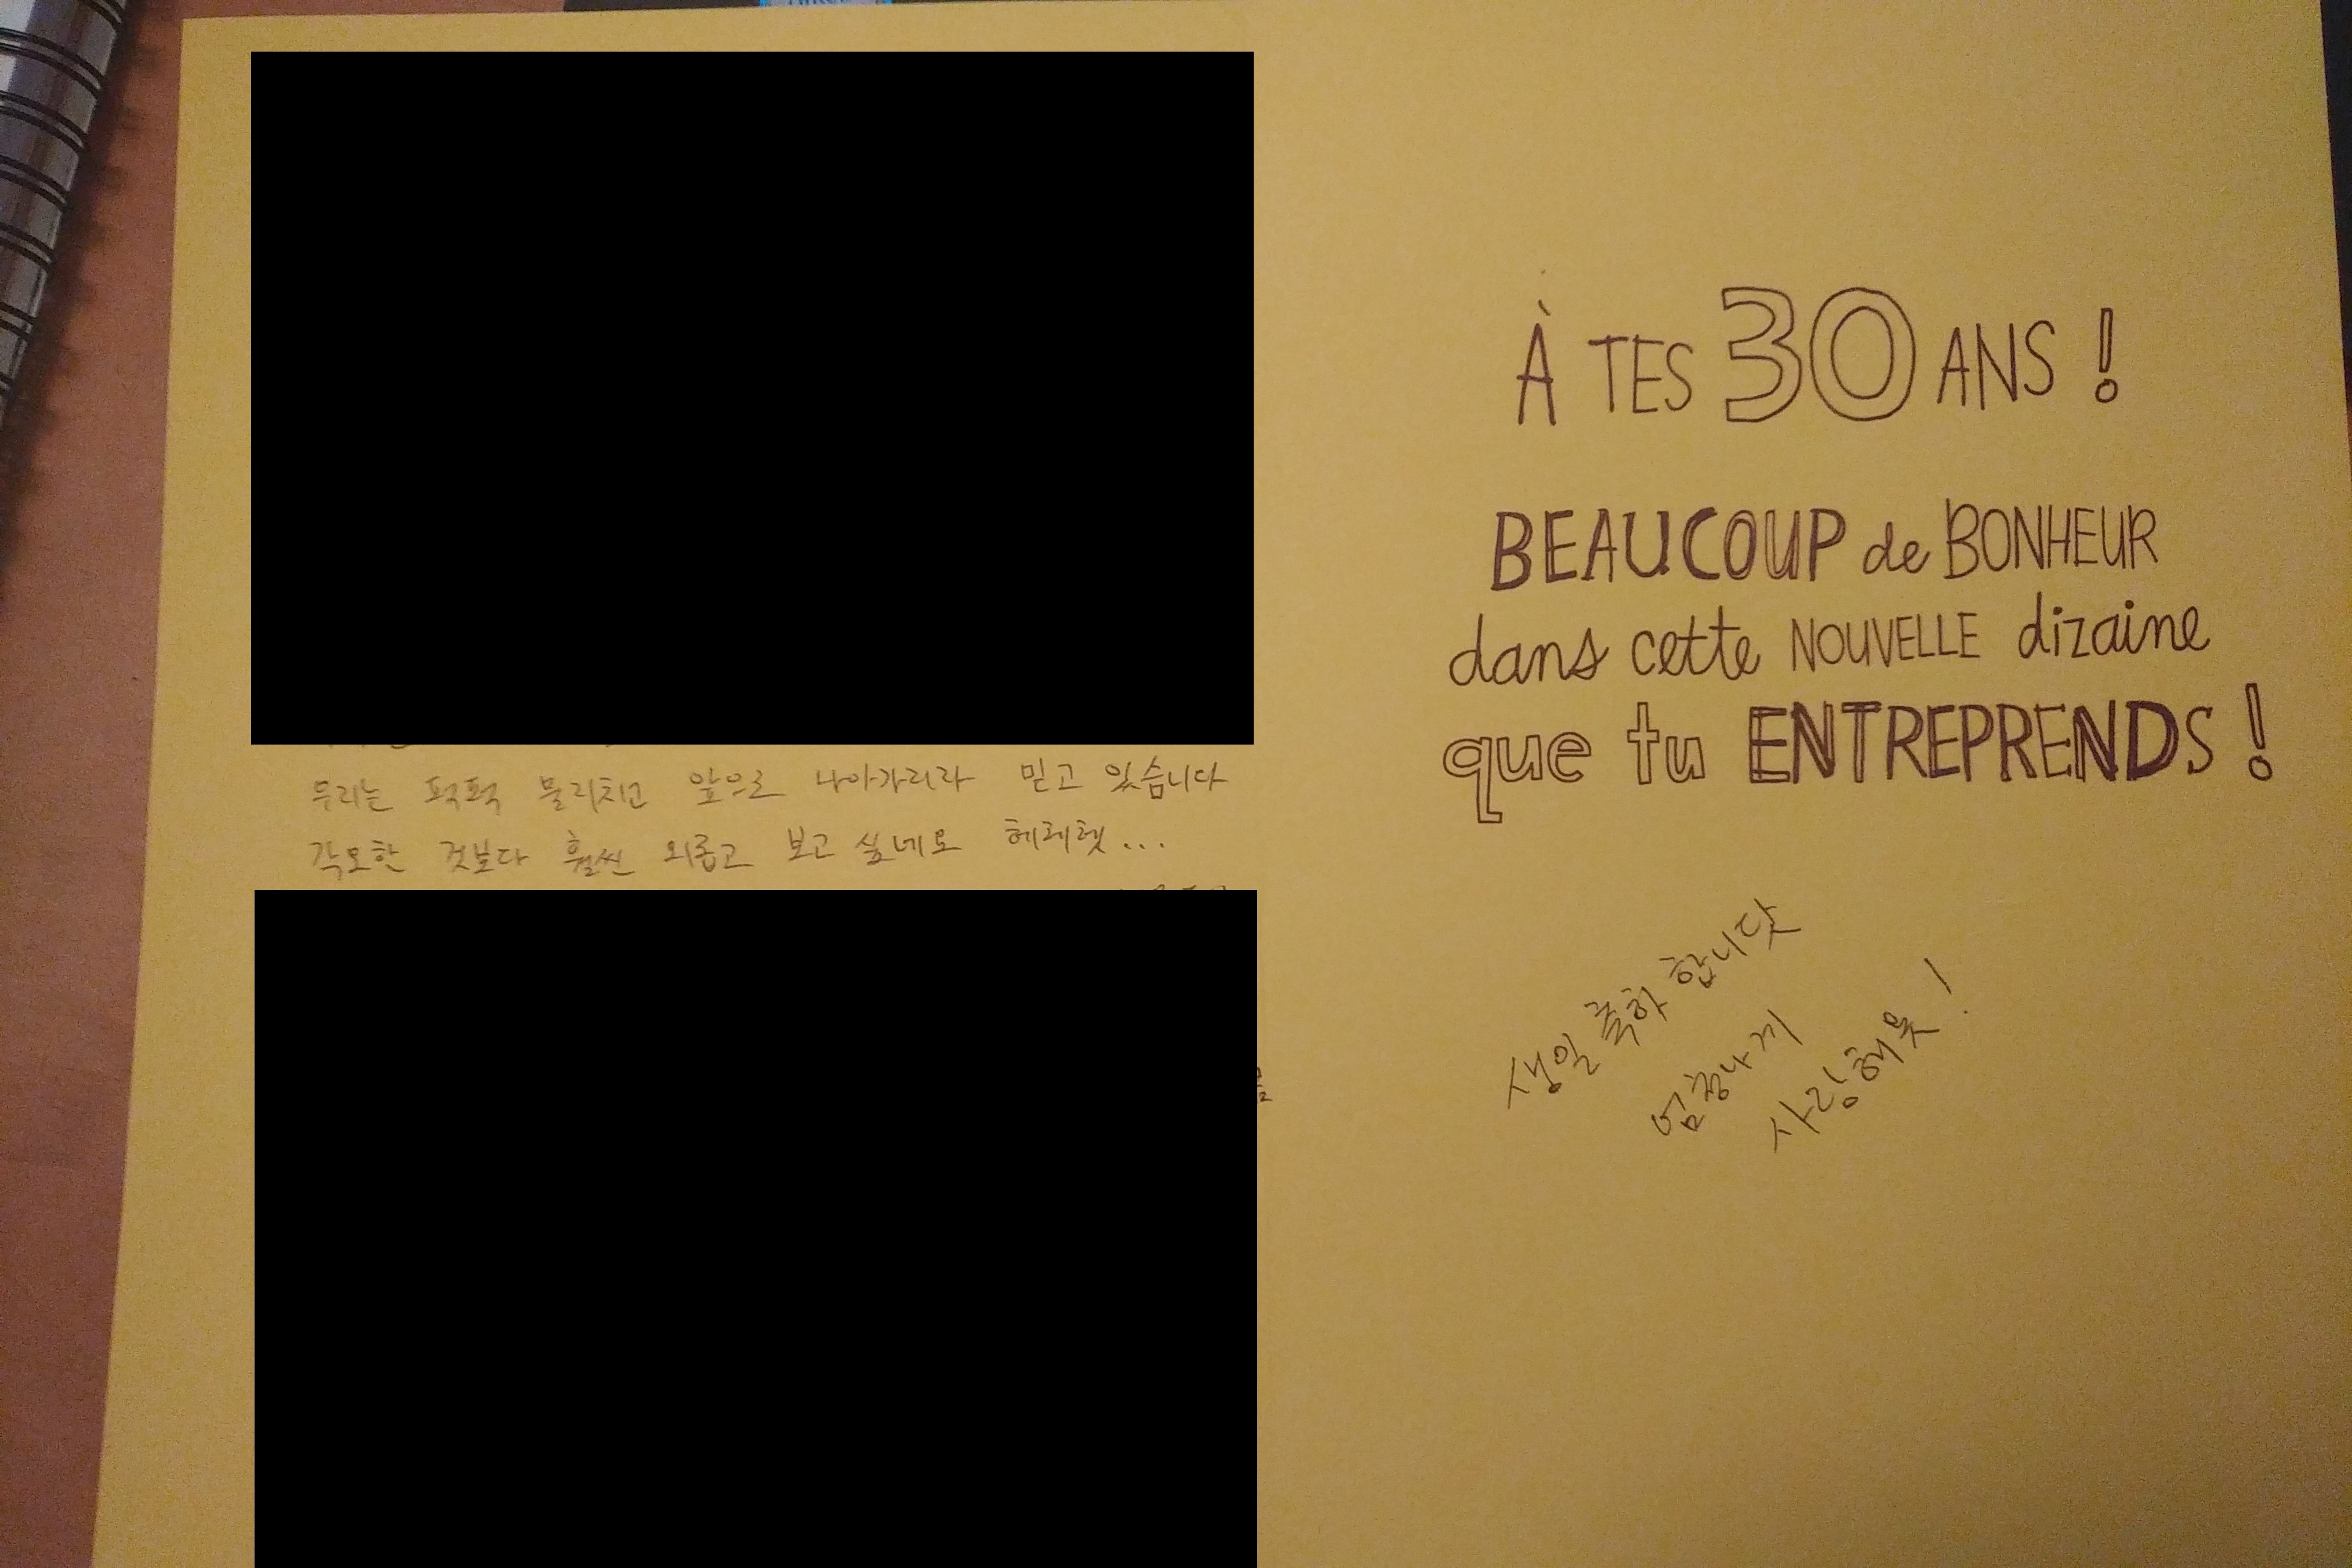 우리는 퍽퍽 물리치고 앞으로 나아가리라 믿고 있습니다
각오한 것보다 훨씬 외롭고 보고 싶네요 헤헤헷...
À TES 30 ANS !
BEAUCOUP de BONHEUR
dans cette NOUVELLE dizaine
que tu ENTREPRENDS !
생일 축하 합니닷
엄청나게
사랑해욧!